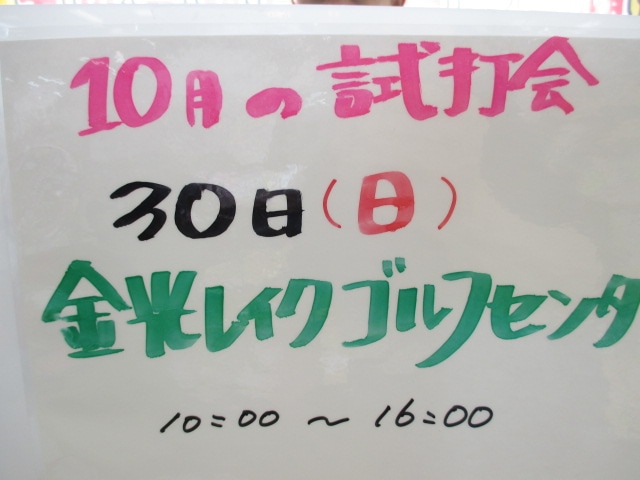 10月の試打会
30日(日)
金光レイクゴルフセンタ
10:00 ～ 16:00